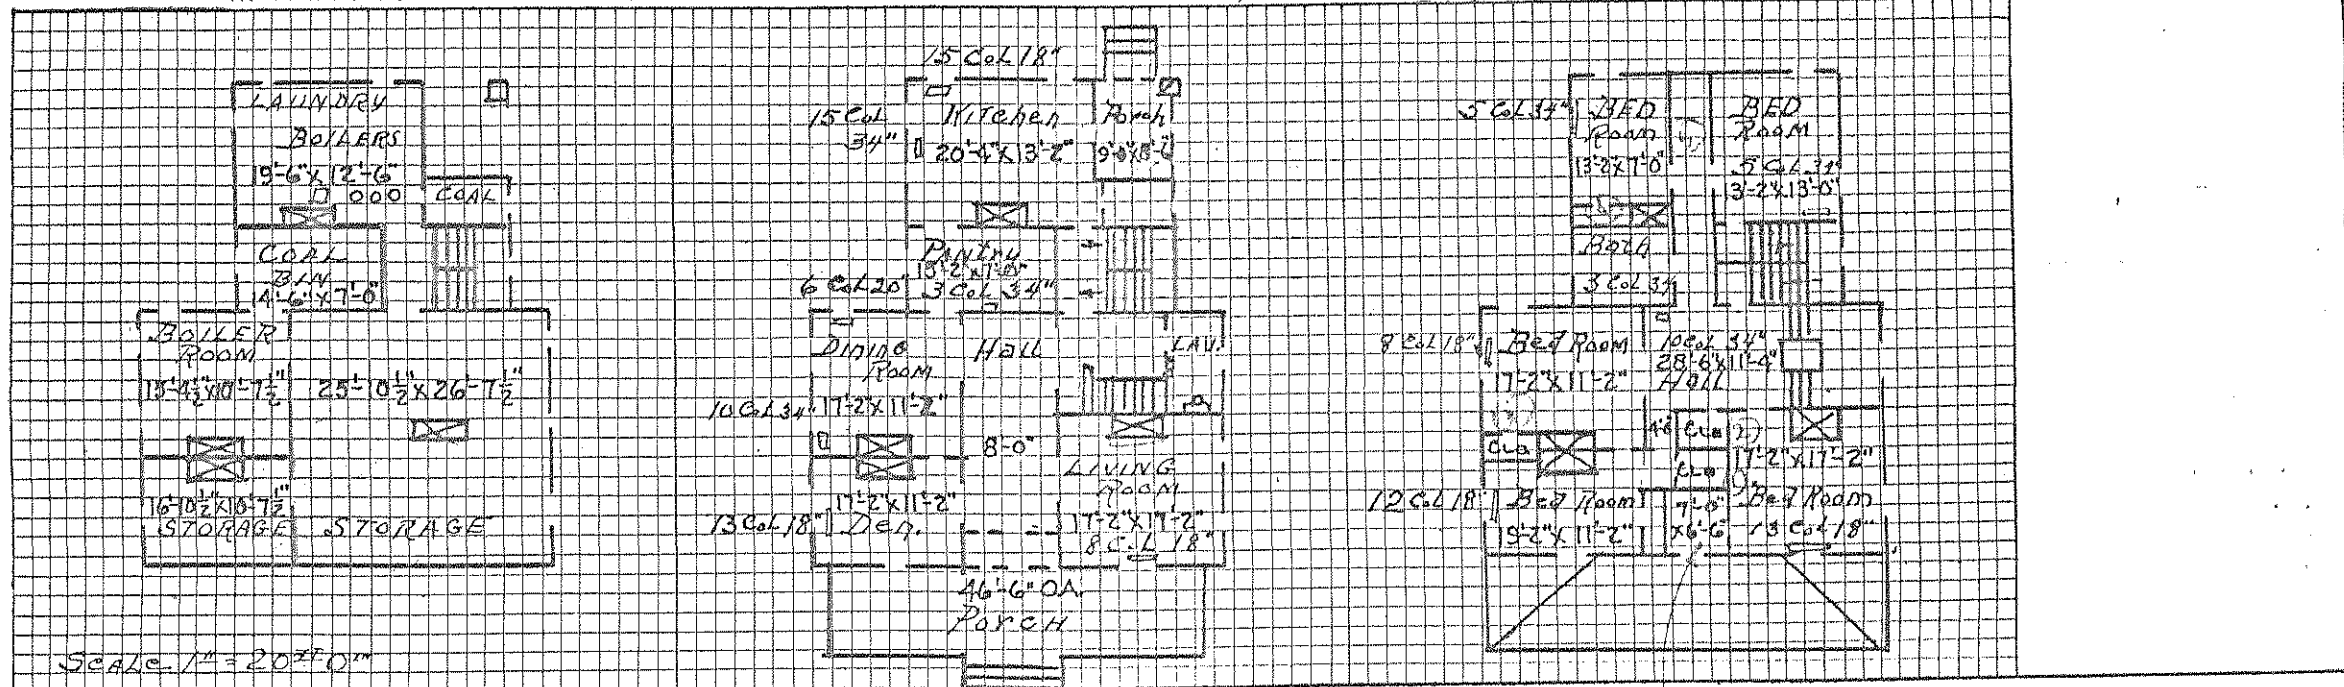 LAUNDRY
BOILERS
19'-6" x 12'-6"
COAL
COAL
BIN
14'-6" x 7'-0"
BOILER
ROOM
15'-4½" x 10'-7½"
25'-10½" x 26'-7½"
16'-10½" x 10'-7½"
STORAGE
STORAGE
SCALE 1" = 20 FT 0"
15 Col 18"
15 Col
34"
Kitchen
20'-4" x 13'-2"
Porch
Pantry
3 Col 34"
6 Col 20"
Dining
Room
17'-2" x 11'-2"
10 Col 34"
Hall
LAV.
8'-0"
LIVING
ROOM
17'-2" x 17'-2"
8 Col 18"
17'-2" x 11'-2"
Den.
13 Col 18"
46'-6" OA.
PORCH
5 Col 34"
BED
ROOM
13'-2" x 7'-0"
BED
ROOM
5 Col 34"
13'-2" x 13'-0"
Bath
3 Col 34
8 Col 18"
Bed Room
17'-2" x 11'-2"
10 Col 34"
28'-6" x 11'-4"
Hall
CLO
CLO
CLO
17'-2" x 17'-2"
12 Col 18"
Bed Room
15'-2" x 11'-2"
7'-0"
x 6'-6"
Bed Room
13 Col 18"